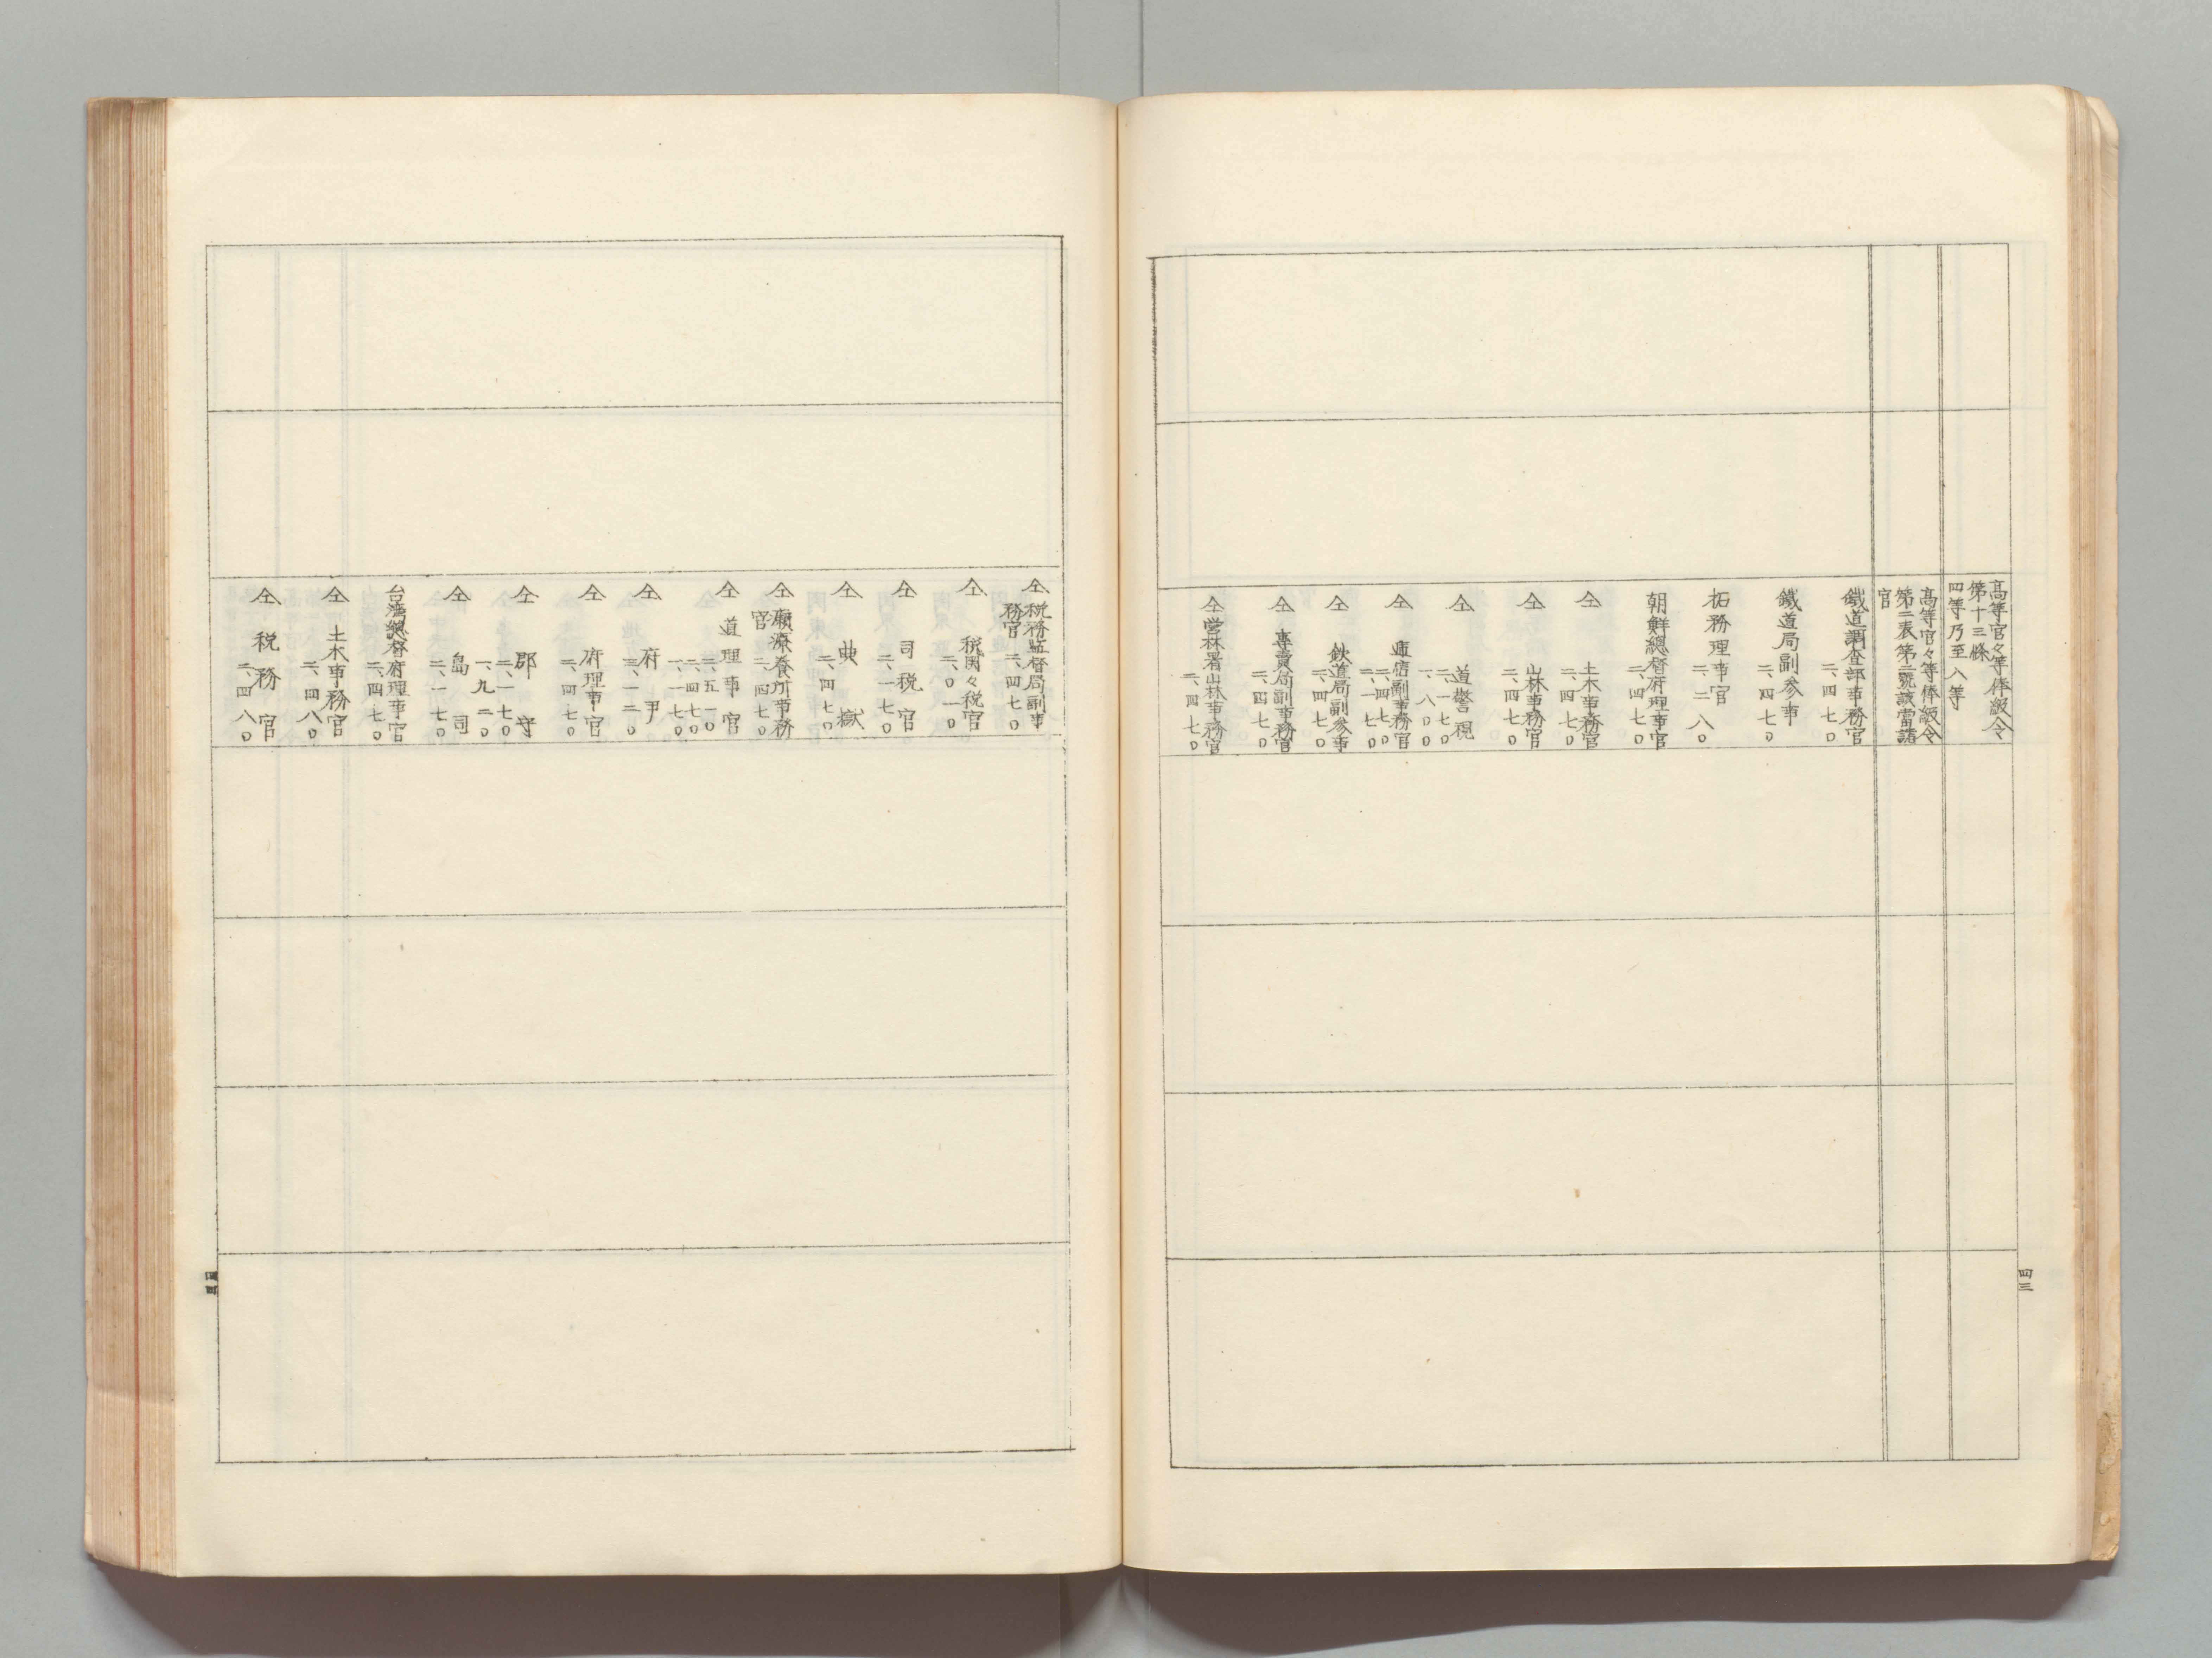 高等官々等俸級令
第十三條
四等乃至八等
高等官々等俸級令
第二表第二號該當諸
官
鐵道調査部事務官
二、四七〇
鐵道局副参事
二、四七〇
拓務理事官
二、二八〇
朝鮮總督府理事官
二、四七〇
仝 土木事務官
二、四七〇
仝 山林事務官
二、四七〇
仝 道警視
二、一七〇
一、八〇〇
仝 逓信副事務官
二、四七〇
二、一七〇
仝 鉄道局副参事
二、四七〇
仝 專賣局副事務官
二、四七〇
仝 営林署山林事務官
二、四七〇
四三
仝 税務監督局副事
務官 二、四七〇
仝 税関々税官
二、〇一〇
仝 司税官
二、一七〇
仝 典獄
二、四七〇
仝 癩療養所事務
官 二、四七〇
仝 道理事官
二、五一〇
二、四七〇
一、一七〇
仝 府尹
三、一二〇
仝 府理事官
二、四七〇
仝 郡守
二、一七〇
一、九二〇
仝 島司
二、一七〇
台湾總督府理事官
二、四七〇
仝 土木事務官
二、四八〇
仝 税務官
二、四八〇